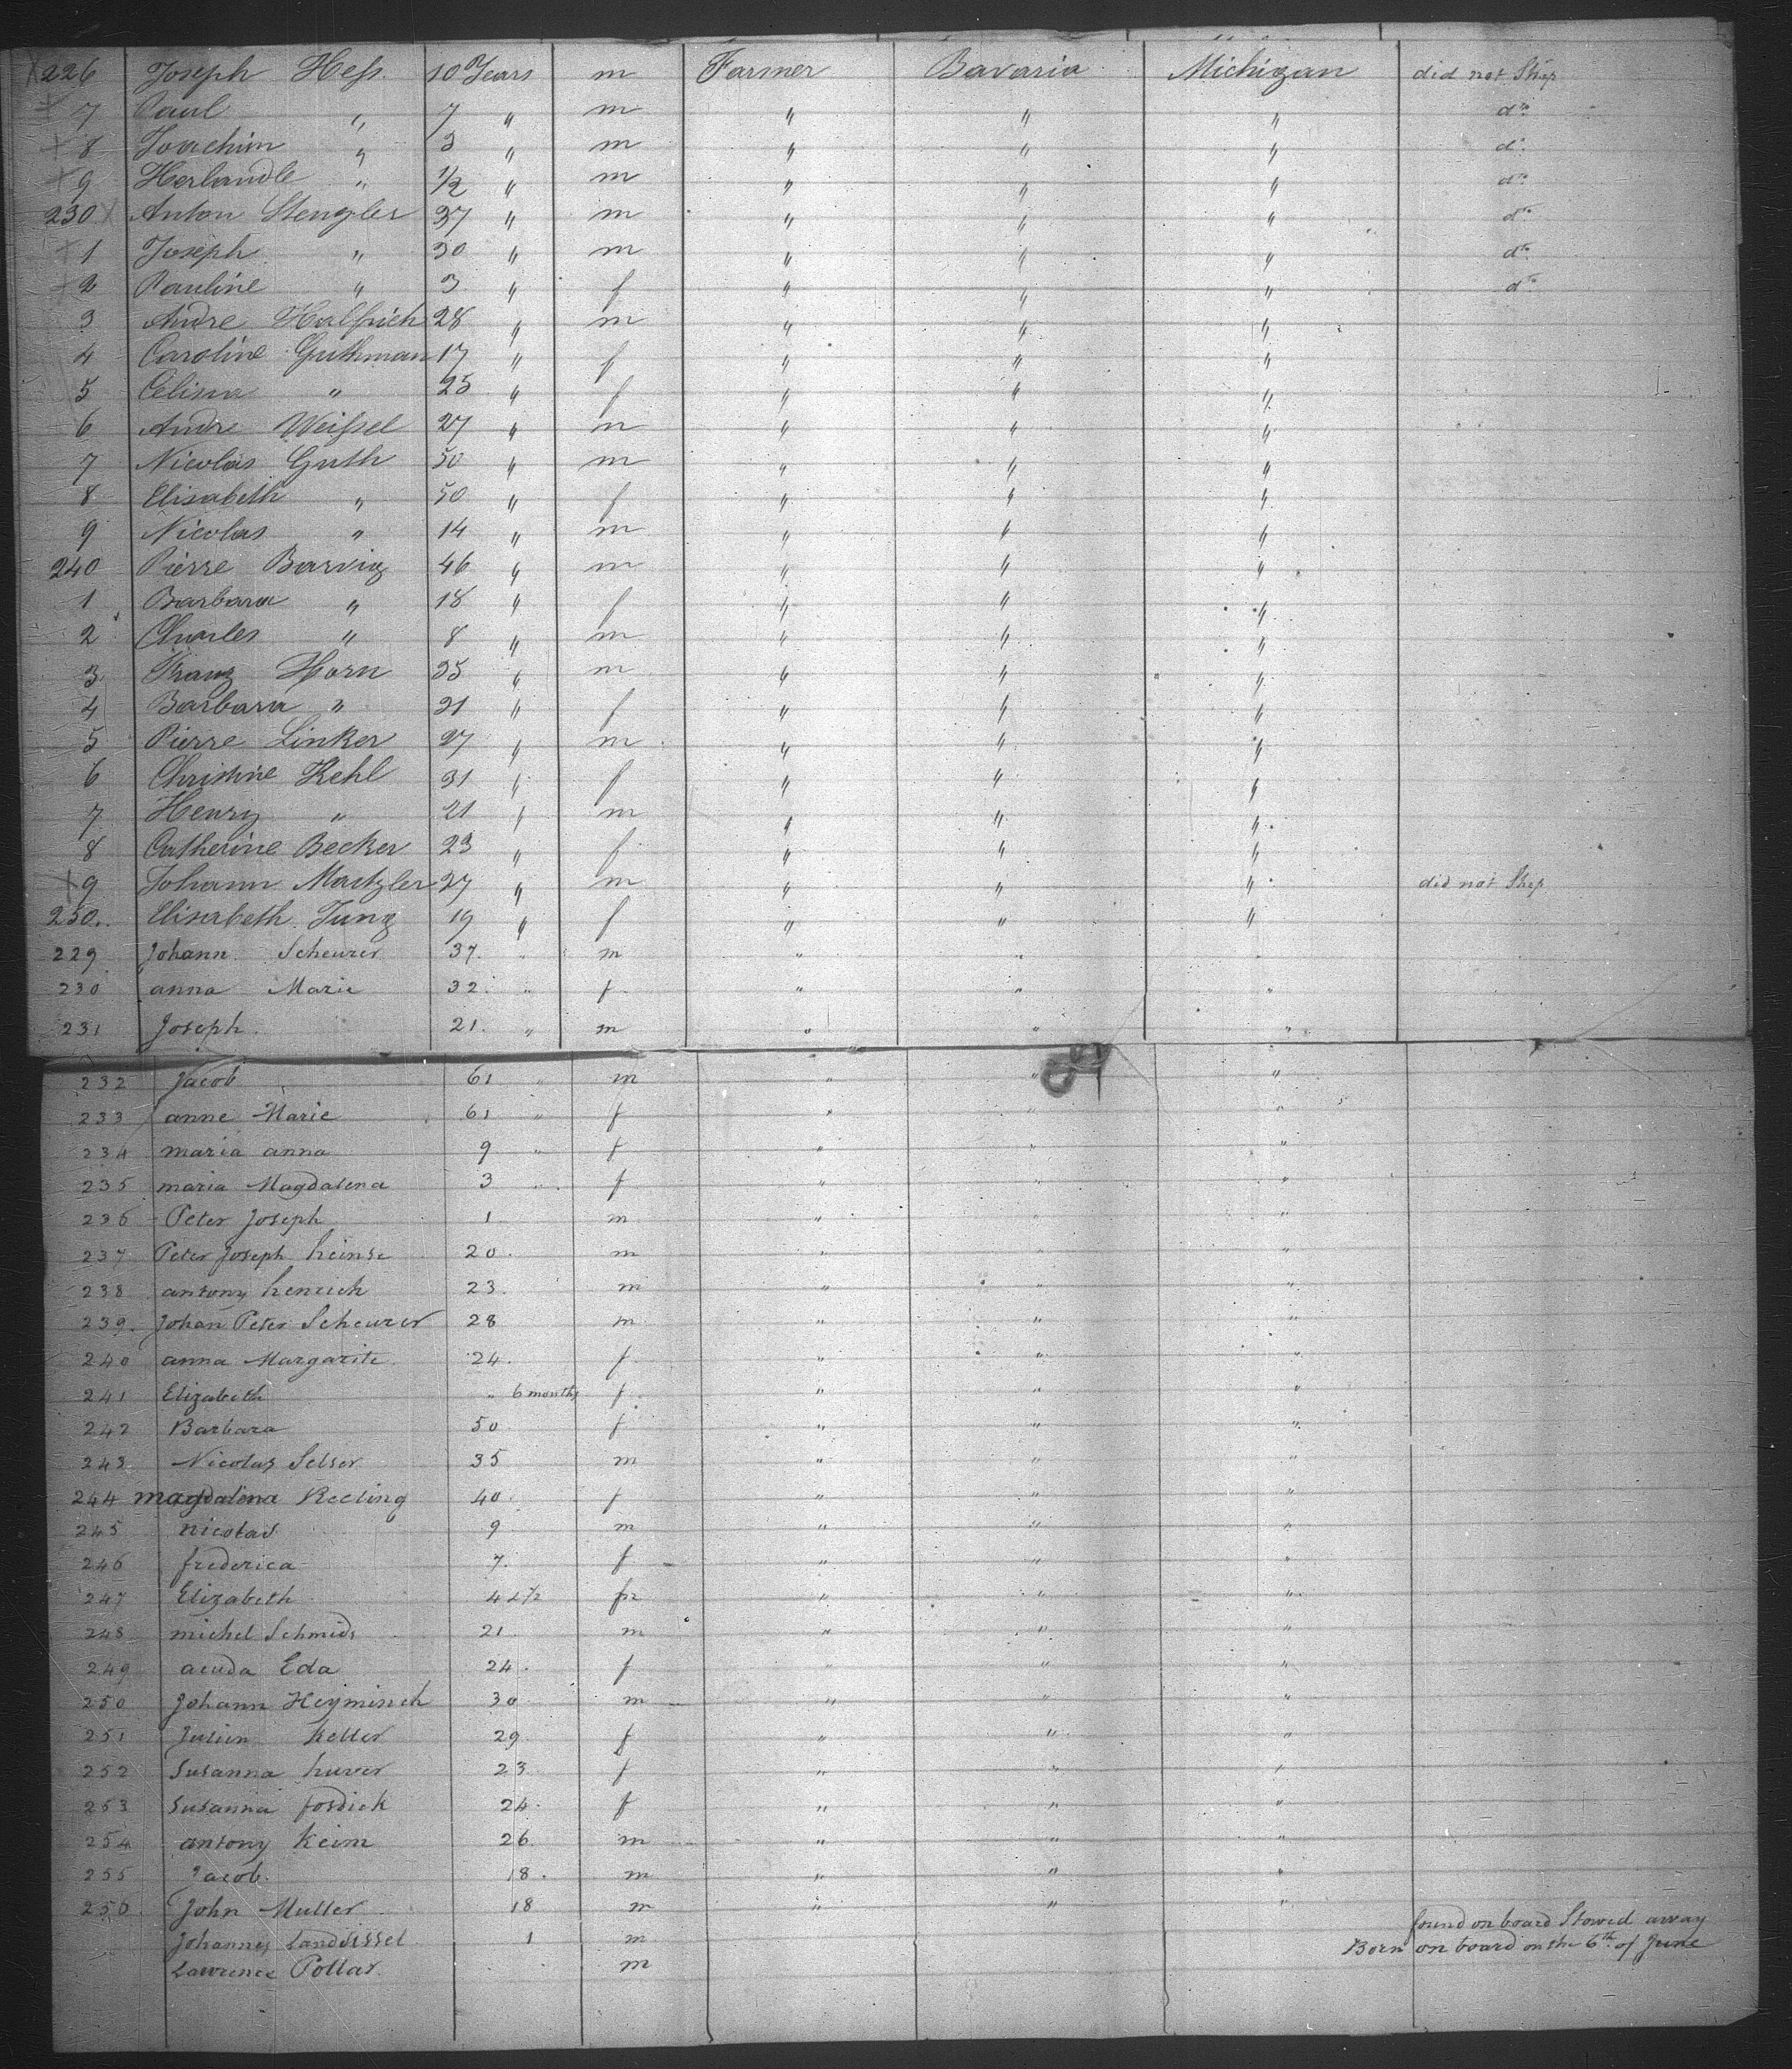 226 Joseph Hess 10 Years m Farmer Bavaria Michigan did not Ship
7 Paul " 7 " m " " " do
8 Joachim " 3 " m " " " do
9 Herlandle " 1/2 " m " " " do
230 Anton Stengler 37 " m " " " do
1 Joseph " 30 " m " " " do
2 Pauline " 3 " f " " " do
3 Andre Halfrich 28 " m " " "
4 Caroline Guthman 17 " f " " "
5 Elisna " 25 " f " " "
6 Andre Weissel 27 " m " " "
7 Nicolas Guth 50 " m " " "
8 Elisabeth " 50 " f " " "
9 Nicolas " 14 " m " " "
240 Pierre Barvig 46 " m " " "
1 Barbara " 18 " f " " "
2 Charles " 8 " m " " "
3 Franz Horn 25 " m " " "
4 Barbara " 21 " f " " "
5 Pierre Linker 27 " m " " "
6 Christine Kehl 31 " f " " "
7 Henry " 21 " m " " "
8 Catherine Becker 23 " f " " "
9 Johann Maitzler 27 " m " " " did not Ship
250. Elisabeth Jung 19 " f " " "
229 Johann Scheurer 37 " m " " "
230 anna Marie 32 " f " " "
231 Joseph 21 " m " " "
232 Jacob 61 " m " " "
233 anne Marie 61 " f " " "
234 maria anna 9 " f " " "
235 maria Magdalena 3 " f " " "
236 Peter Joseph 1 m " " "
237 Peter Joseph heinse 20 m " " "
238 antony henrich 23 m " " "
239 Johan Peter Scheurer 28 m " " "
240 anna Margarite 24 f " " "
241 Elizabeth " 6 months f " " "
242 Barbara 50 f " " "
243 Nicolas Selser 35 m " " "
244 magdalena Reeling 40 f " " "
245 nicolas 9 m " " "
246 frederica 7 f " " "
247 Elizabeth 4 f " " "
248 michel Schmids 21 m " " "
249 acuda Eda 24 f " " "
250 Johann Heyminsch 30 m " " "
251 Julien Keller 29 f " " "
252 Susanna huver 23 f " " "
253 Susanna fosdick 24 f " " "
254 antony Keim 26 m " " "
255 Jacob 18 m " " "
256 John Muller 18 m " " "
found on board Stowed away
Johannes Landsissel 1 m Born on board on the 6th of June
Lawrence Pollar m